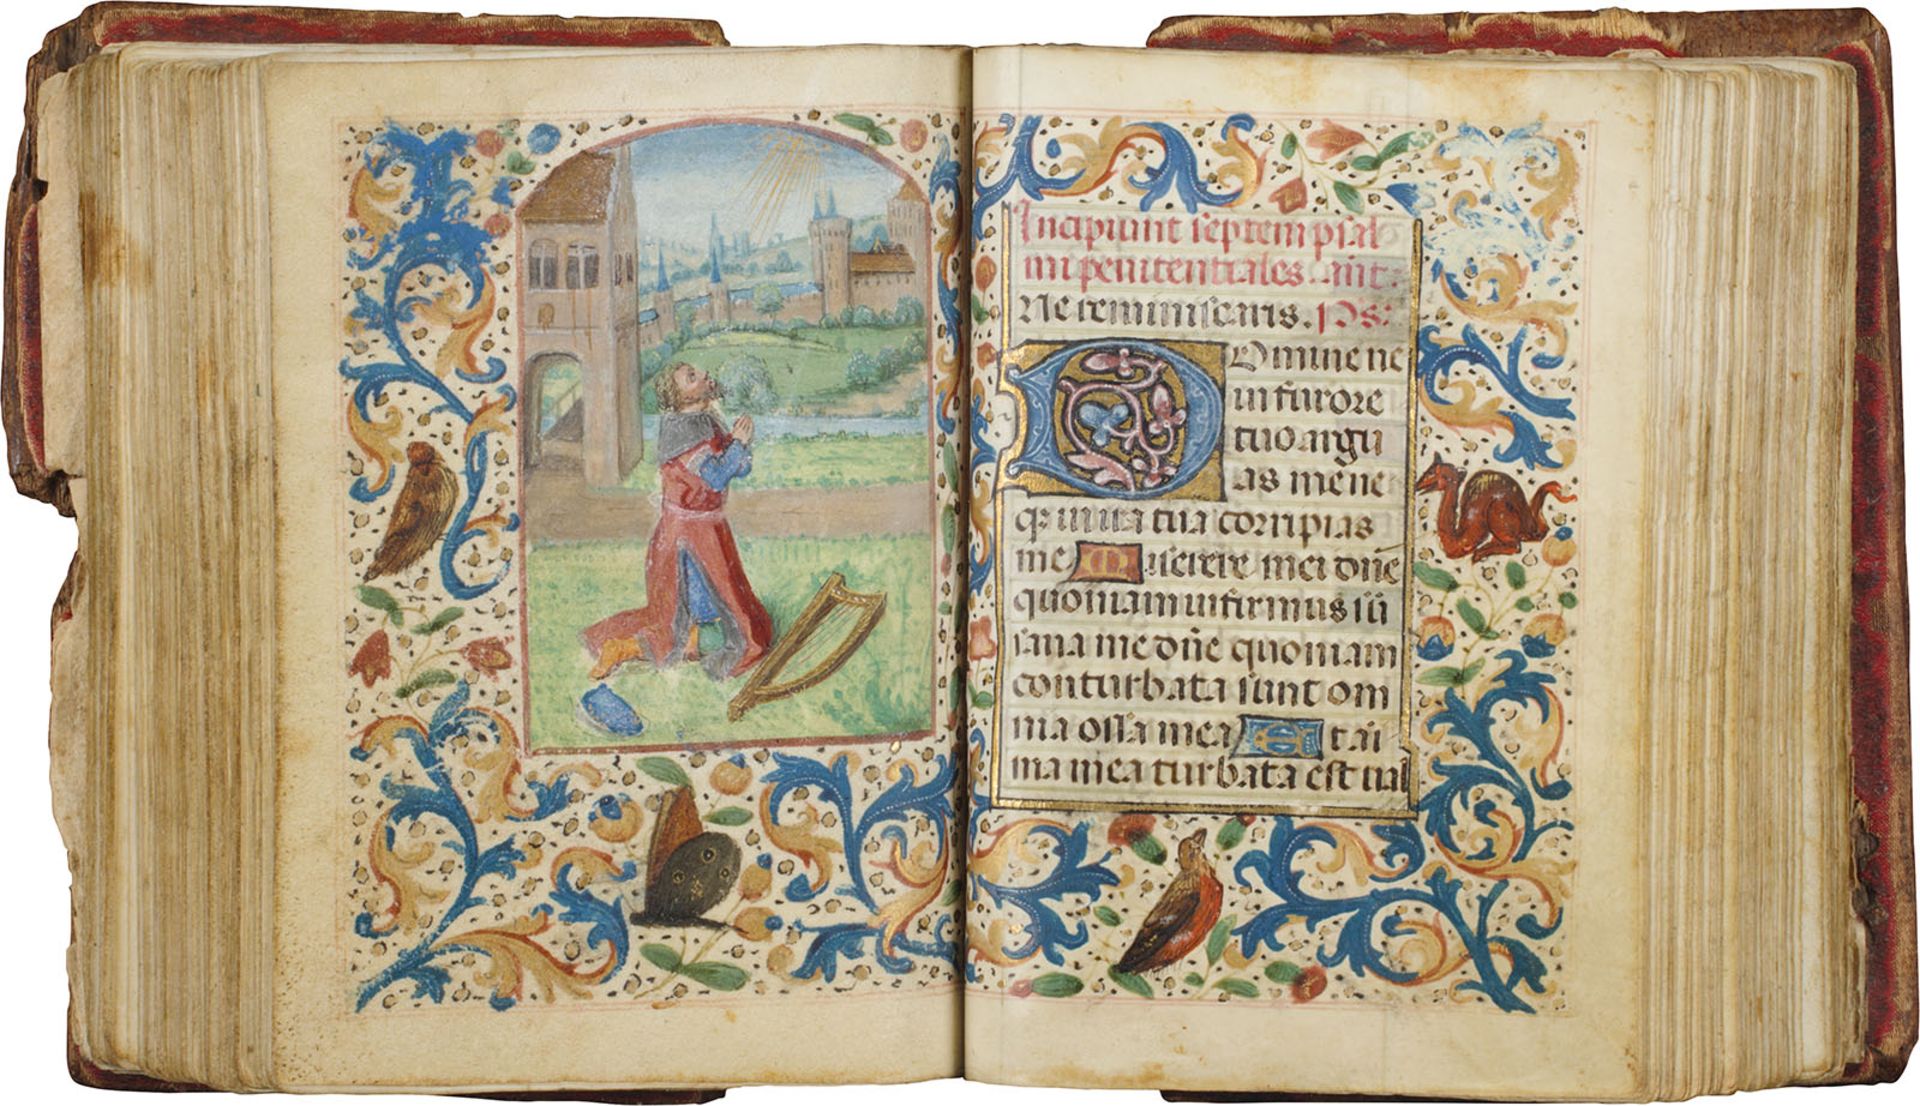 Incipiunt septem psal
mi penitentiales. ant.
Ne reminiscaris. ps.
Domine ne
in furore
tuo argu
as me ne
q; in ira tua corripias
me Miserere mei dn̄e
quoniam infirmus sū
sana me dn̄e quoniam
conturbata sunt om
nia ossa mea Et ani
ma mea turbata est ual